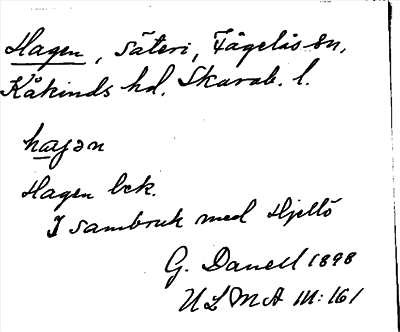 Hagen, säteri, Fågelås sn,
Kåkinds hd, Skarab. l.
hagən
Hagen bek.
I sambruk med Hjellö
G. Danell 1898
ULMA 111:161